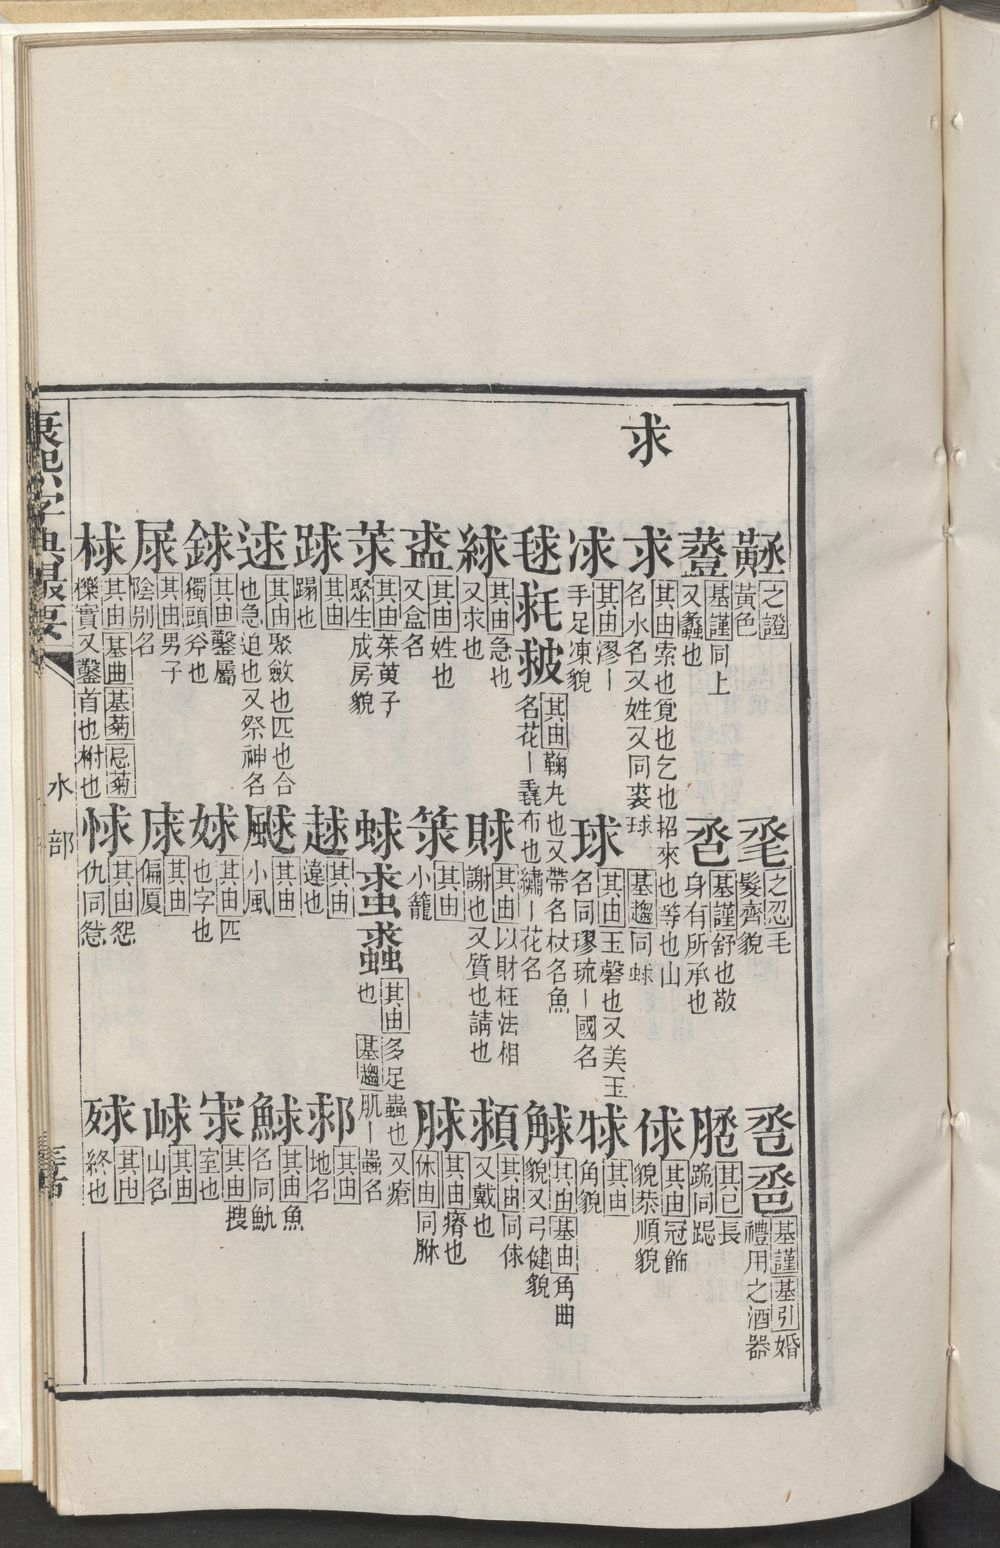 求
䵴 之證 黃色
卺 之忍 毛髮齊貌
卺 𢀿 基謹 基引 婚禮用之酒器
虀 基謹 同上 又蠡也
巹 基謹 舒也敬身有所承也
脀 其己 長跪同跽
求 其由 索也覓也乞也招來也等也山名水名又姓又同裘球
俅 其由 冠飾貌恭順貌
浗 其由 漻｜手足凍貌
球 其由 玉磬也又美玉 基趨 同蛷 名同璆琉｜國名
㭝 其由 角貌
毬 毥 㲃 其由 鞠丸也又帶名杖名魚名花｜毳布也繡｜花名
觩 其由 基由 角曲貌又弓健貌
絿 其由 急也又求也
賕 其由 以財枉法相謝也又質也請也
頄 其由 同俅又戴也
盚 其由 姓也又盒名
箂 其由 小籠
脙 其由 瘠也 休由 同脉
莍 其由 茱萸子聚生成房貌
蛷 蝵 蟗 其由 多足蟲也又瘡也 基趨 肌｜蟲名
䟵 其由 蹋也
𧻱 其由 違也
郣 其由 地名
逑 其由 聚斂也匹也合也急迫也又祭神名
䬛 其由 小風
鯄 其由 魚名同鮂
銶 其由 鑿屬獨頭斧也
㛏 其由 匹也字也
㝌 其由 㨱室也
㞗 其由 男子陰別名
㡱 其由 偏廈
崷 其由 山名
梂 其由 基曲 基菊 忌菊 櫟實又鑿首也椒也
㤹 其由 怨仇同𠎝
殏 其由 終也
康熙字典撮要
水部